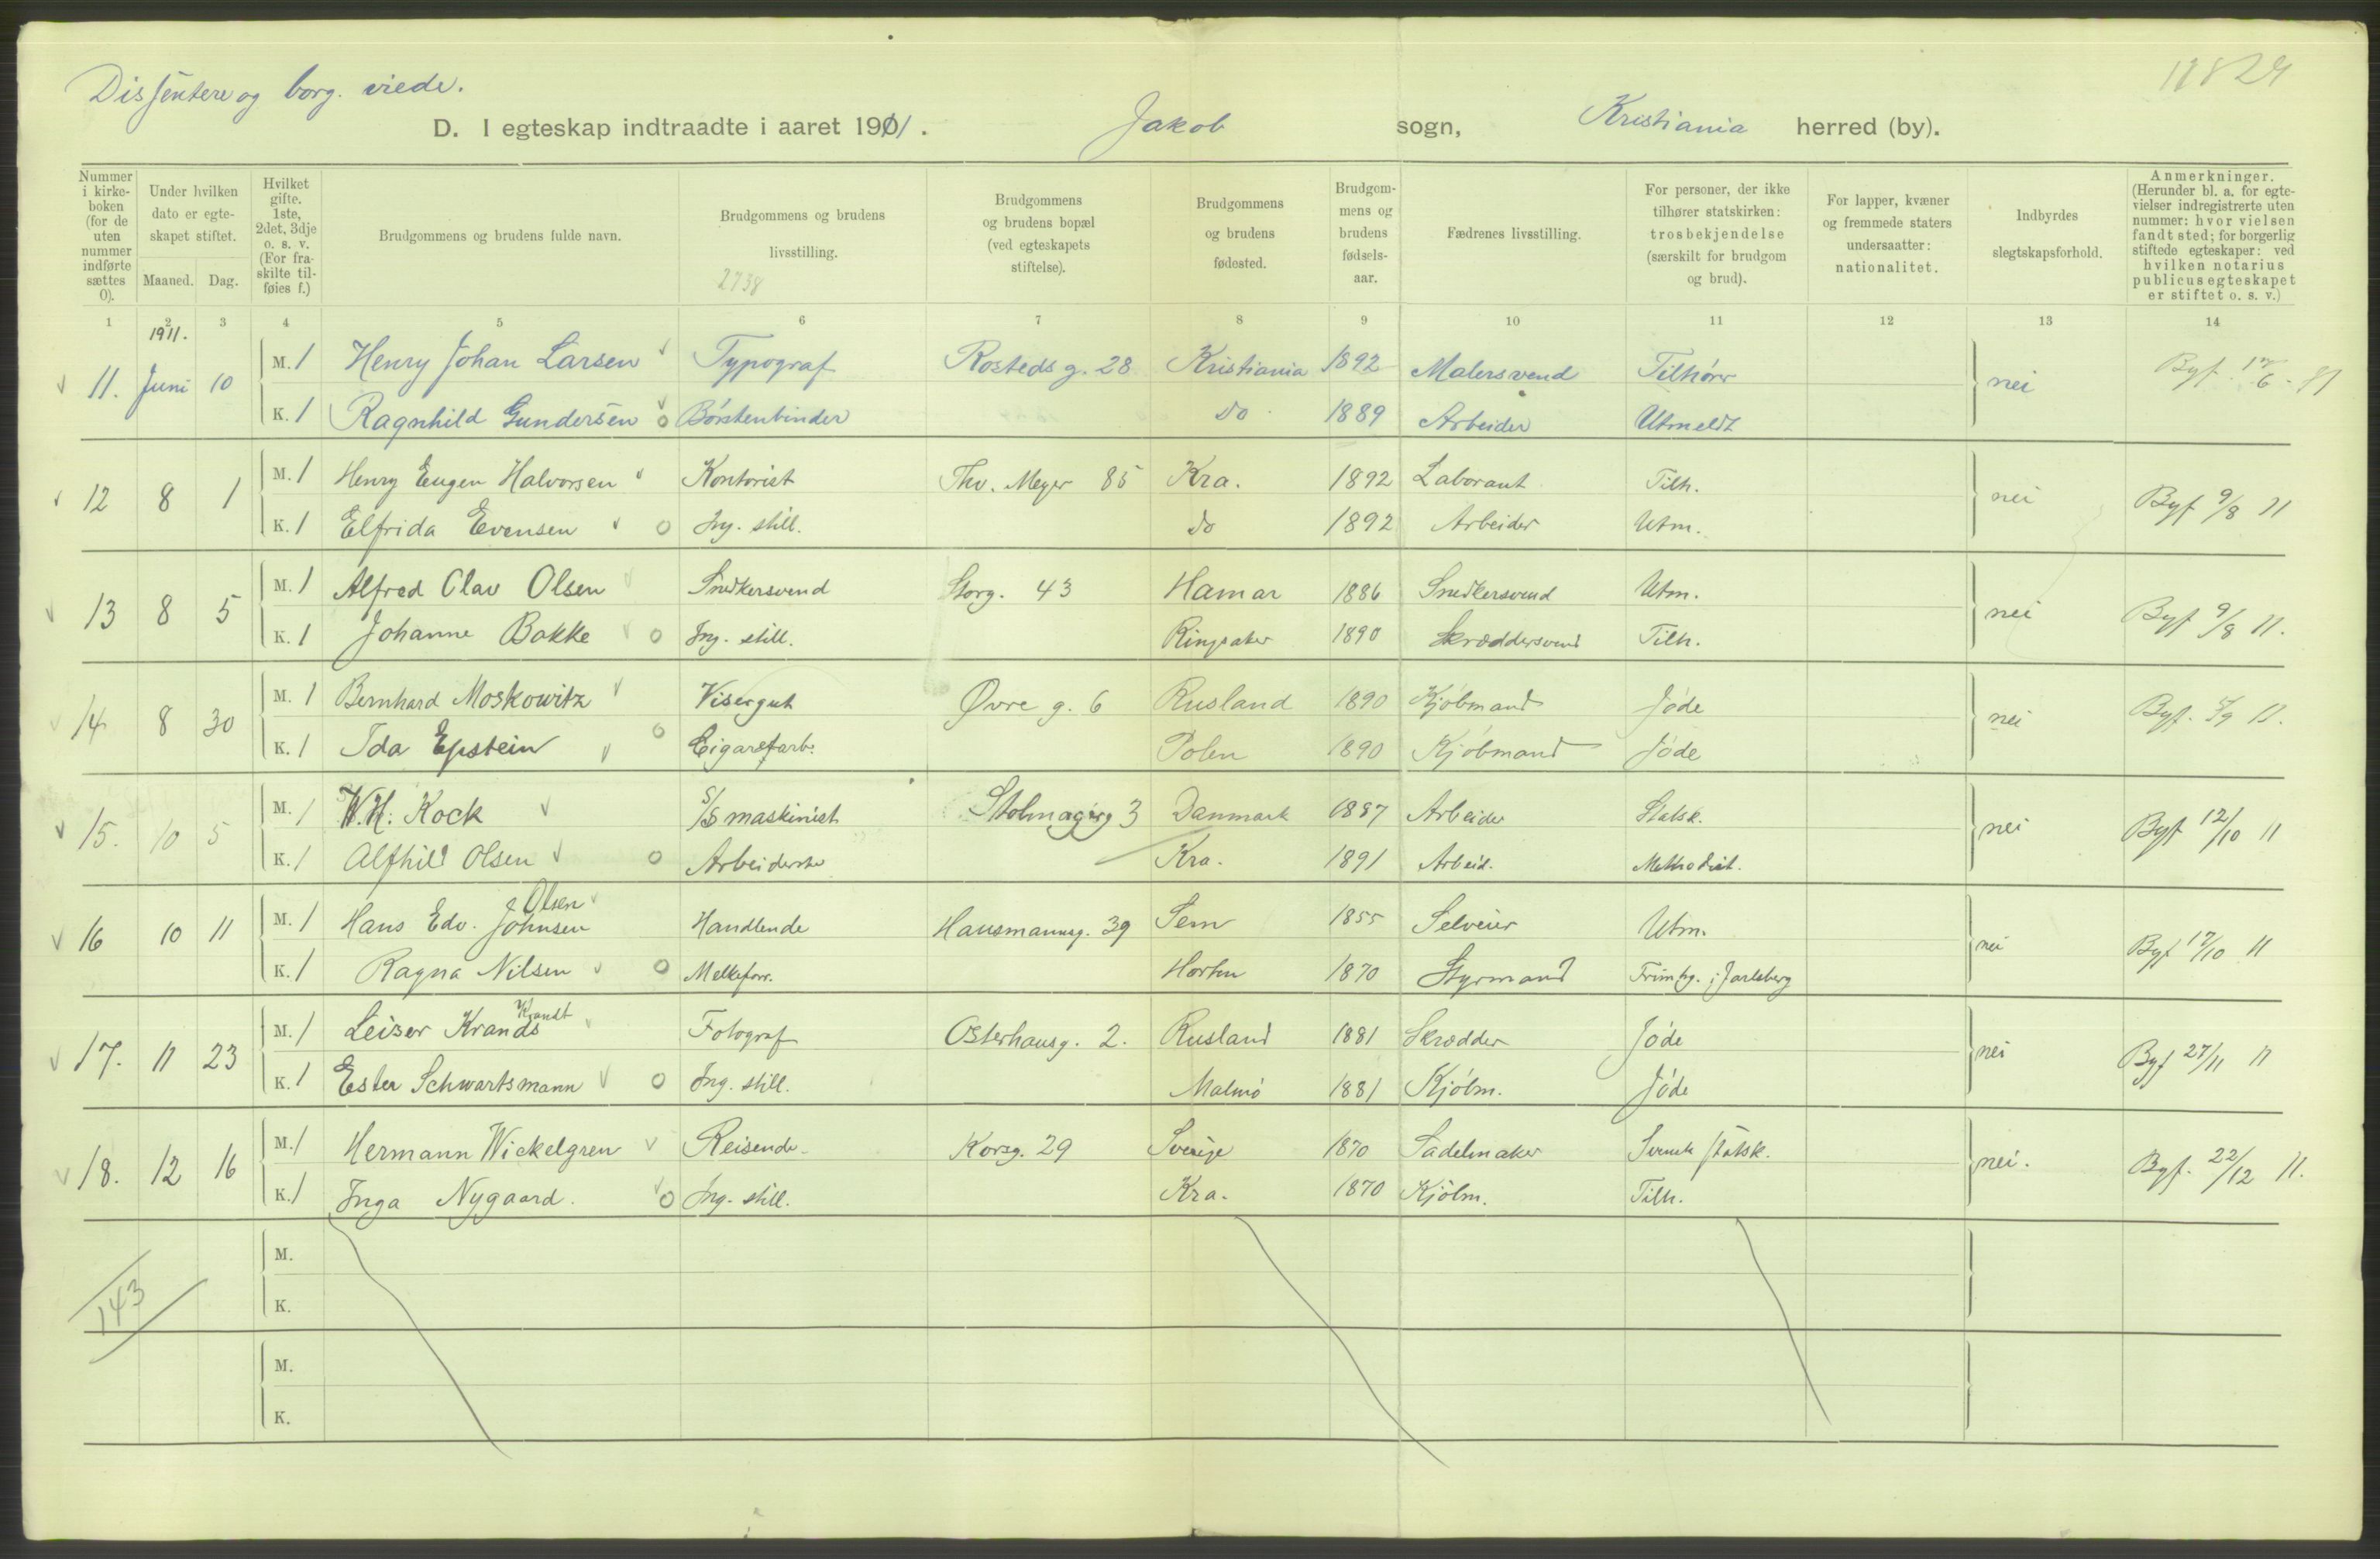 Dissentere og borg. viede.
D. I egteskap indtraadte i aaret 1911. Jakob sogn, Kristiania herred (by).
Nummer i kirke-boken (for de uten nummer indførte sættes 0). Under hvilken dato er egte-skapet stiftet. Maaned. Dag. Hvilket gifte. 1ste, 2det, 3dje o. s. v. (For fra-skilte til-føies f.) Brudgommens og brudens fulde navn. Brudgommens og brudens livsstilling. Brudgommens og brudens bopæl (ved egteskapets stiftelse). Brudgommens og brudens fødested. Brudgom-mens og brudens fødsels-aar. Fædrenes livsstilling. For personer, der ikke tilhører statskirken: trosbekjendelse (særskilt for brudgom og brud). For lapper, kvæner og fremmede staters undersaatter: nationalitet. Indbyrdes slegtskapsforhold. Anmerkninger. (Herunder bl. a. for egte-vielser indregistrerte uten nummer: hvor vielsen fandt sted; for borgerlig stiftede egteskaper: ved hvilken notarius publicus egteskapet er stiftet o. s. v.)
2738
1 2 3 4 5 6 7 8 9 10 11 12 13 14
1911.
11. Juni 10 M. 1 Henry Johan Larsen Typograf Rosteds g. 28 Kristiania 1892 Malersvend Tilhører nei Byf. 17/6 - 11
K. 1 Ragnhild Gundersen o Børstenbinder do 1889 Arbeider Utmeldt
12 8 1 M. 1 Henry Eugen Halvorsen Kontorist Thv. Meyer 85 Kra. 1892 Laborant Tilh. nei Byf 9/8 11
K. 1 Elfrida Evensen o Ing. still. do 1892 Arbeider Utm.
13 8 5 M. 1 Alfred Olav Olsen Snedkersvend Storg. 43 Hamar 1886 Snedkersvend Utm. nei Byf 9/8 11.
K. 1 Johanne Bakke o Ing. still. Ringsaker 1890 Skræddersvend Tilh.
14 8 30 M. 1 Bernhard Moskowitz Visergut Øvre g. 6 Rusland 1890 Kjøbmand Jøde nei Byf. 5/9 11.
K. 1 Ida Epstein o Cigaretarb. Polen 1890 Kjøbmand Jøde
15. 10 5 M. 1 W. H. Kock S/S maskinist Stolmagerg 3 Danmark 1887 Arbeider Statsk. nei Byf 12/10 11
K. 1 Alfhild Olsen o Arbeiderske Kra. 1891 Arbeid. Methodist.
Olsen
16 10 11 M. 1 Hans Edv. Johnsen Handlende Hausmannsg. 39 Sem 1855 Selveier Utm. nei Byf 17/10 11
K. 1 Ragna Nilsen o Melkeforr. Horten 1870 Styrmand Frimhg. i Jarlsberg
Krandt
17. 11 23 M. 1 Leiser Krands Fotograf Osterhausg. 2. Rusland 1881 Skrædder Jøde nei Byf 27/11 11
K. 1 Ester Schwartsmann o Ing. still. Malmø 1881 Kjøbm. Jøde
18. 12 16 M. 1 Hermann Wickelgren Reisende Korsg. 29 Sverige 1870 Sadelmaker Svensk statsk. nei. Byf. 22/12 11.
K. 1 Inga Nygaard. o Ing. still. Kra. 1870 Kjøbm. Tilh.
M.
143
K.
M.
K.